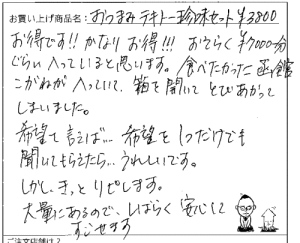 お買い上げ商品名：おつまみテキトー珍味セット¥3800
お得です!! かなりお得!!! おそらく¥7000分
ぐらい入っていると思います。食べたかった函館
こがねが入っていて、箱を開いてとびあがって
しまいました。
希望で言えば… 希望を1つだけでも
聞いてもらえたら… うれしいです。
しかし、きっとリピします。
大量にあるので、しばらく安心して
すごせます
ご注文店舗は？